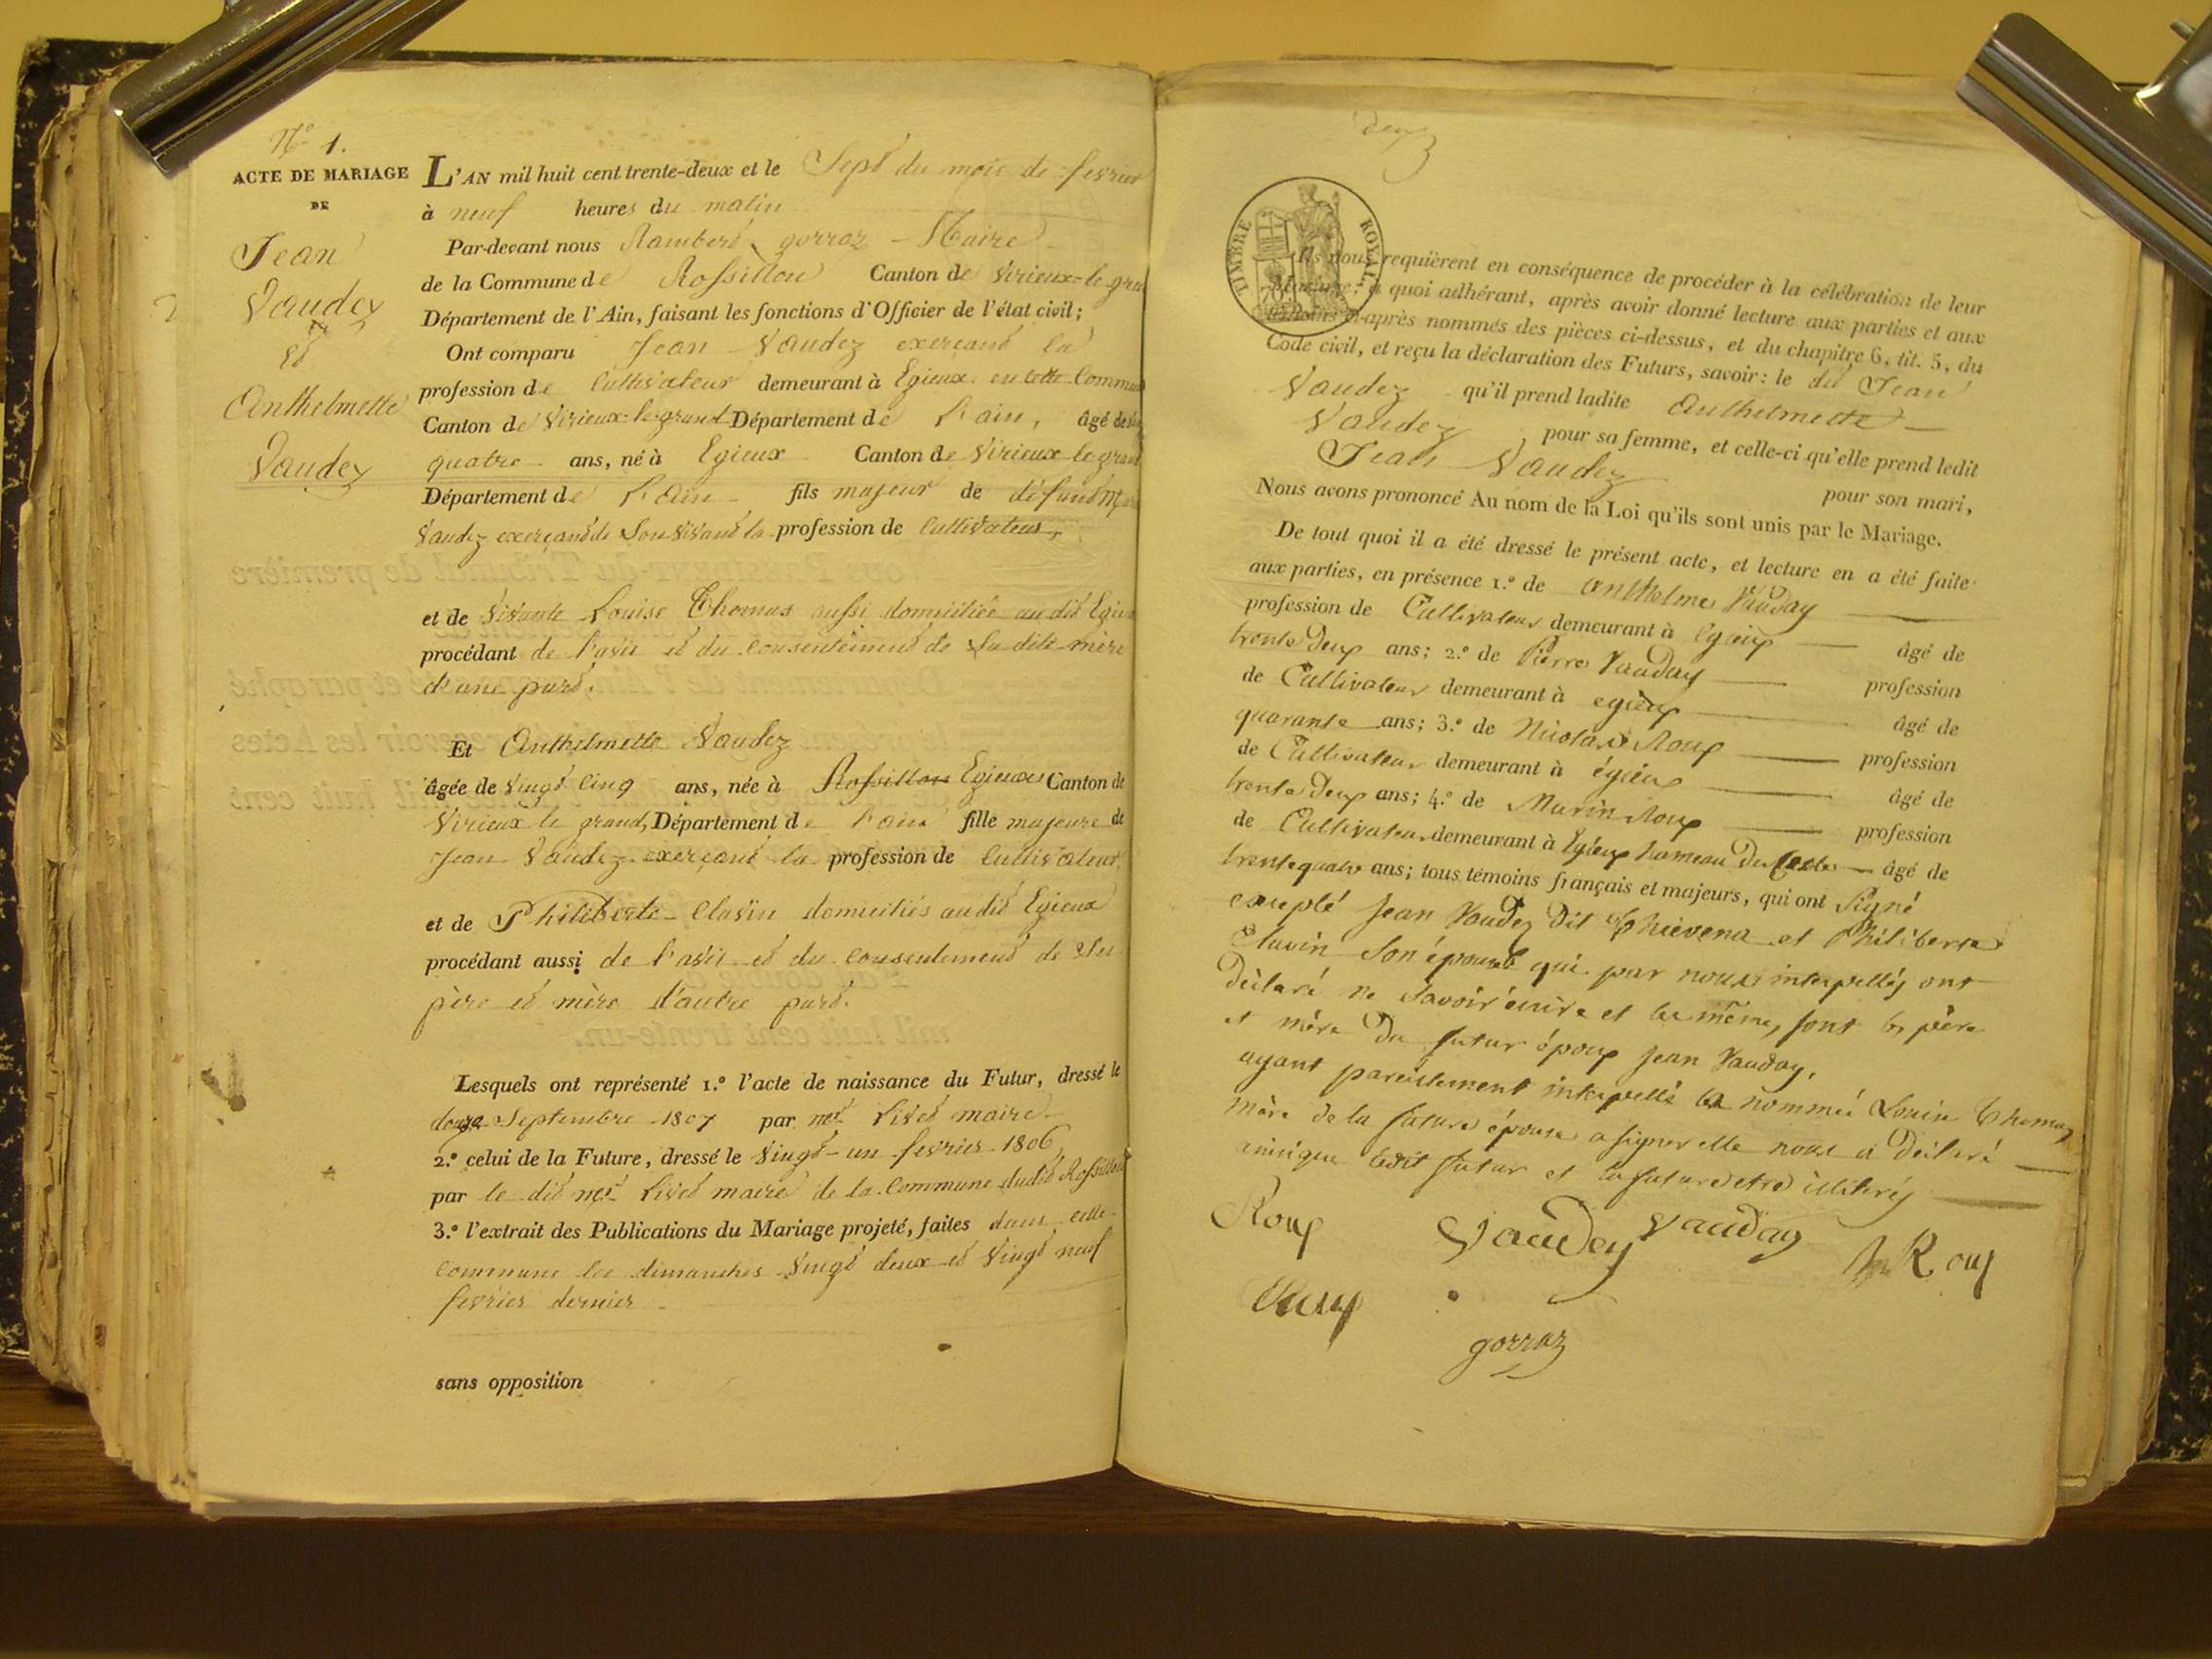 N° 1.
ACTE DE MARIAGE
DE
Jean
Vaudey
et
Anthelmette
Vaudey
L'AN mil huit cent trente-deux et le Sept du mois de fevrier
à neuf heures du matin
Par-devant nous Rambert gorraz Maire
de la Commune de Rossillon Canton de Virieux-le-gra
Département de l'Ain, faisant les fonctions d'Officier de l'état civil;
Ont comparu Jean Vaudez exerçant la
profession de Cultivateur demeurant à Egieux en cette Commun
Canton de Virieux-le-grand Département de l'ain, âgé de
quatre ans, né à Egieux Canton de Virieux-le-grand
Département de l'ain fils majeur de défunt
Vaudez exerçant de Son Vivant la profession de Cultivateur,
et de Vivante Louise Thomas aussi domiciliée au dit Egieu
procédant de l'avis et du consentement de Sa dite mère
d'une part.
Et Anthelmette Vaudez
âgée de Vingt Cinq ans, née à Rossillon Egieux Canton de
Virieux le grand, Département de l'ain fille majeure de
Jean Vaudez exerçant la profession de Cultivateur,
et de Philiberte Clavin domiciliés au dit Egieux
procédant aussi de l'avis et du Consentement de Ses
père et mère d'autre part.
Lesquels ont représenté 1.° l'acte de naissance du Futur, dressé le
douze Septembre 1807 par mr Livet maire
2.° celui de la Future, dressé le Vingt-un fevrier 1806
par le dit mr Livet maire de la Commune dudit Rossillon
3.° l'extrait des Publications du Mariage projeté, faites dans cette
Commune les dimanches Vingt deux et Vingt neuf
fevrier dernier
sans opposition
deux
TIMBRE ROYAL
70
Ils nous requièrent en conséquence de procéder à la célébration de leur
Mariage; à quoi adhérant, après avoir donné lecture aux parties et aux
témoins ci-après nommés des pièces ci-dessus, et du chapitre 6, tit. 5, du
Code civil, et reçu la déclaration des Futurs, savoir: le dit Jean
Vaudez qu'il prend ladite Anthelmette
Vaudez pour sa femme, et celle-ci qu'elle prend ledit
Jean Vaudez pour son mari,
Nous avons prononcé Au nom de la Loi qu'ils sont unis par le Mariage.
De tout quoi il a été dressé le présent acte, et lecture en a été faite
aux parties, en présence 1.° de Anthelme Vauday
profession de Cultivateur demeurant à Egieux âgé de
trente deux ans; 2.° de Pierre Vauday profession
de Cultivateur demeurant à egieux âgé de
quarante ans; 3.° de Nicolas Roux profession
de Cultivateur demeurant à égieux âgé de
trente deux ans; 4.° de Marin Roux profession
de Cultivateur demeurant à Egieux hameau du âgé de
trente quatre ans; tous témoins français et majeurs, qui ont Signé
excepté Jean Vaudez Dit et Philiberte
Clavin Son épouse qui par nous interpellés ont
Déclaré ne Savoir écrire et les même, sont les père
et mère Du futur époux Jean Vauday,
ayant pareillement interpellé la nommée Louise Thomas
mère de la future épouse a signer elle nous a Déclaré
ainsi que ledit futur et la future etre illitérés
Roux Vaudey Vauday Roux
gorraz